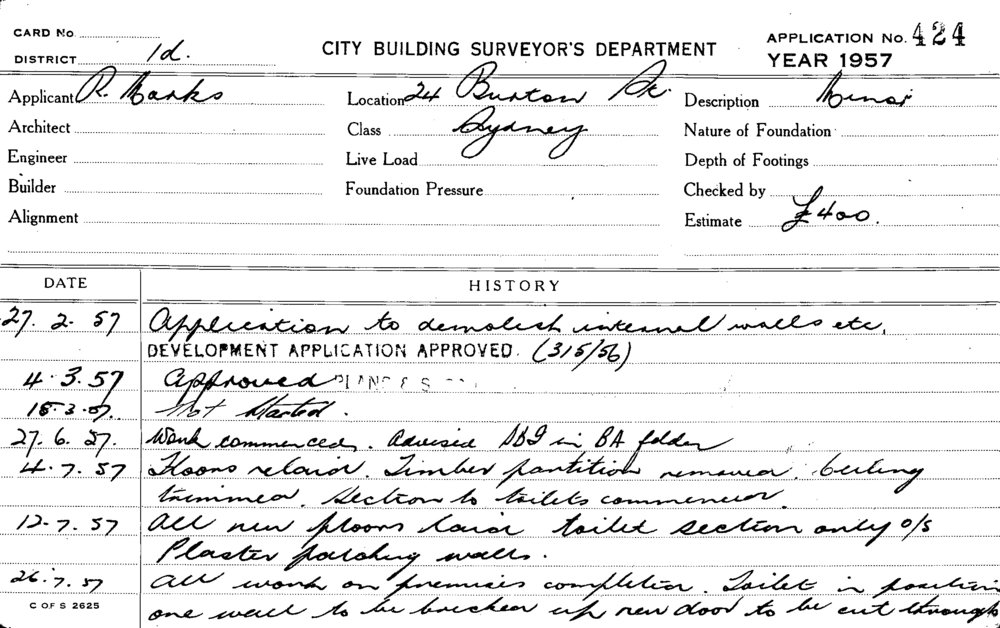 CARD No.
DISTRICT 1d.
CITY BUILDING SURVEYOR'S DEPARTMENT
APPLICATION No. 424
YEAR 1957
Applicant R. Marks
Location 24 Burton St.
Description Minor
Architect
Class Sydney
Nature of Foundation
Engineer
Live Load
Depth of Footings
Builder
Foundation Pressure
Checked by
Alignment
Estimate £400.
DATE HISTORY
27. 2. 57 Application to demolish internal walls etc.
DEVELOPMENT APPLICATION APPROVED. (315/56)
4. 3. 57 Approved PLANS & S
15. 3. 57. Not Started.
27. 6. 57. Work commenced. Advised DBI in BA folder
4. 7. 57 Floors relaid. Timber partition removed. Ceiling
trimmed. Section to toilets commenced
12. 7. 57 All new floors laid toilet section only o/s
Plaster patching walls.
26. 7. 57 All work on premises completed. Toilet in position
one wall to be bricked up new door to be cut through
C OF S 2625